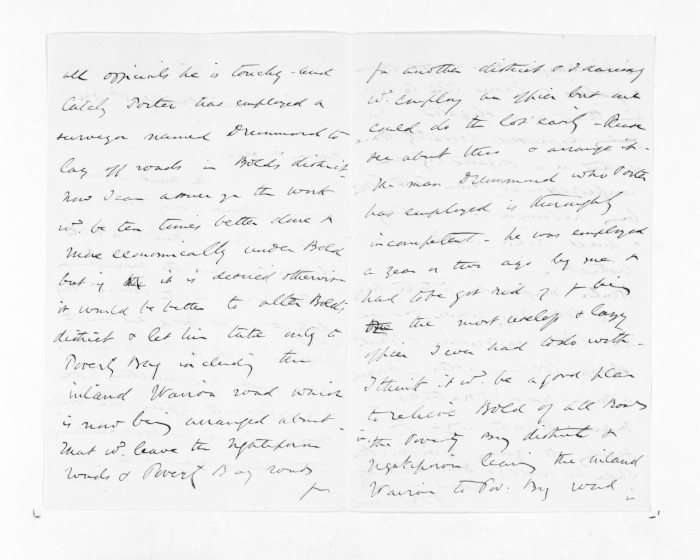 all officials he is touchy - and
lately Porter has employed a
surveyor named Drummond to
lay off roads in Bold's district
now I can assure you the work
wd. be ten times better done &
more economically under Bold
but if the it is desired otherwise
it would be better to alter Bold's
district & let him take only to
Poverty Bay including the
inland Wairoa road which
is now being arranged about -
That wd. leave the Ngatiporou
roads & Poverty Bay roads
for
for another district &
wd. employ an officer but one
could do the lot easily - Please
see about this & arrange it -
The man Drummond who Porter
has employed is thoroughly
incompetent - he was employed
a year or two ago by me &
had to be got rid of for being
the the most useless & lazy
officer I ever had to do with -
I think it wd. be a good plan
to relieve Bold of all Roads
in the Poverty Bay district &
Ngatiporou leaving the inland
Wairoa to Pov: Bay road -